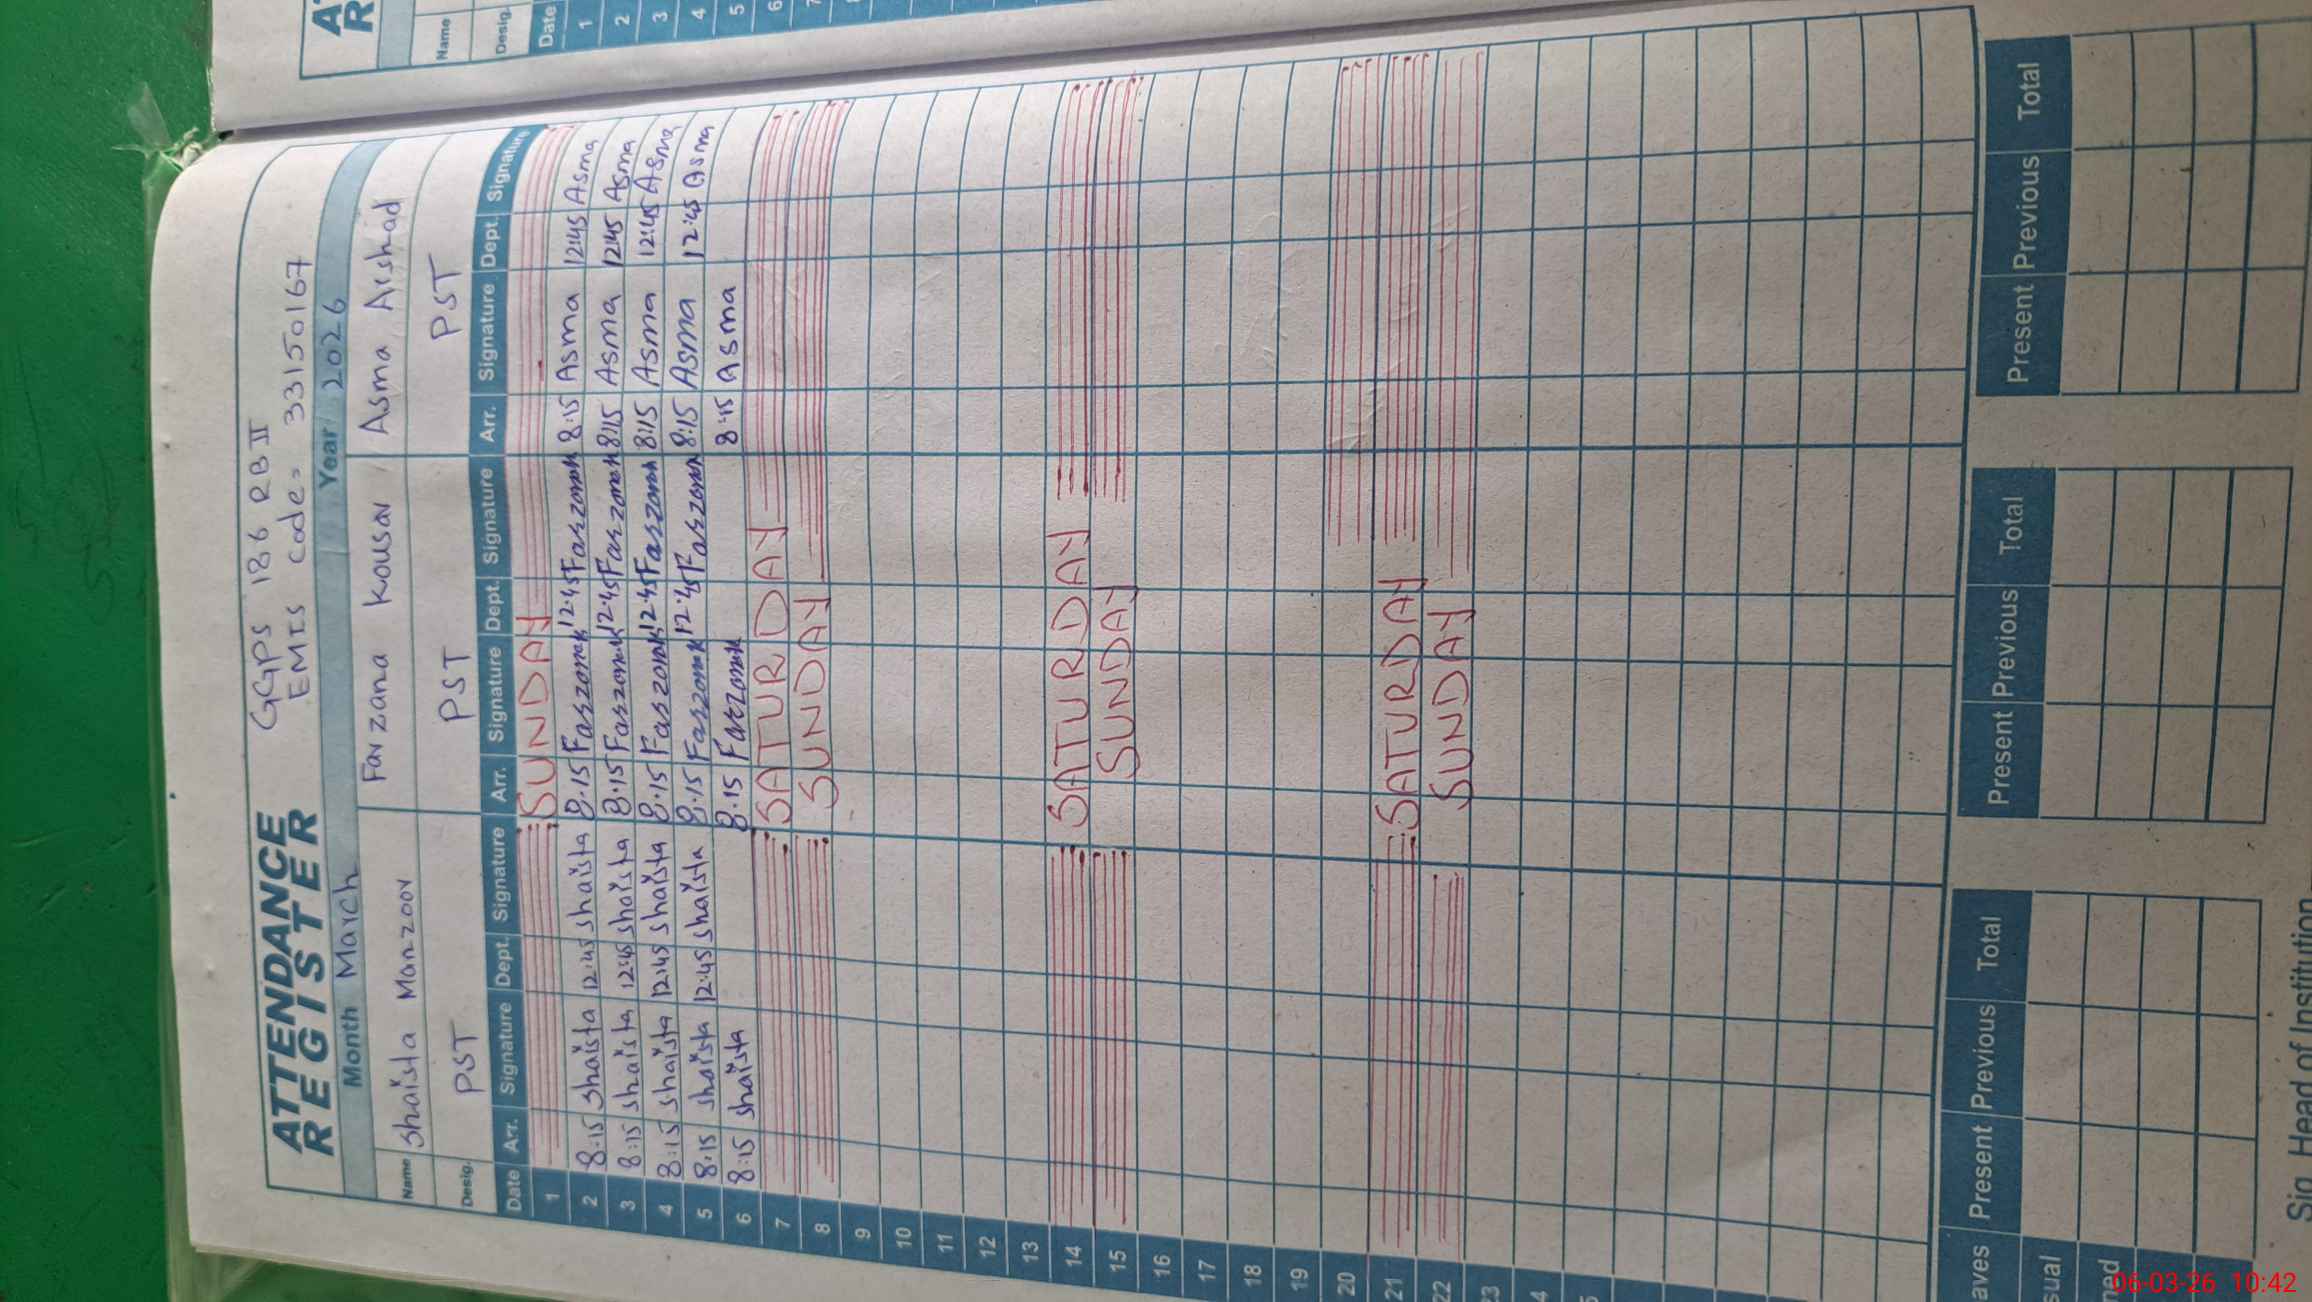 ATTENDANCE REGISTER
GGPS 186 RB II
EMIS Code = 33150167
Month March Year 2026
Name Shaista Manzoor Farzana Kousar Asma Arshad
Desig. PST PST PST
Date Arr. Signature Dept. Signature Arr. Signature Dept. Signature Arr. Signature Dept. Signature
1 SUNDAY
2 8:15 Shaista 12:45 Shaista 8:15 12:45 8:15 Asma 12:45 Asma
3 8:15 Shaista 12:45 Shaista 8:15 12:45 8:15 Asma 12:45 Asma
4 8:15 Shaista 12:45 Shaista 8:15 12:45 8:15 Asma 12:45 Asma
5 8:15 Shaista 12:45 Shaista 8:15 12:45 8:15 Asma 12:45 Asma
6 8:15 Shaista 8:15 8:15 Asma
7 SATURDAY
8 SUNDAY
9
10
11
12
13
14 SATURDAY
15 SUNDAY
16
17
18
19
20
21 SATURDAY
22 SUNDAY
23
4
5
aves Present Previous Total Present Previous Total Present Previous Total
sual
ned
Sig. Head of Institution
Name
Desig.
Date
1
2
3
4
5
6
7
06-03-26 10:42